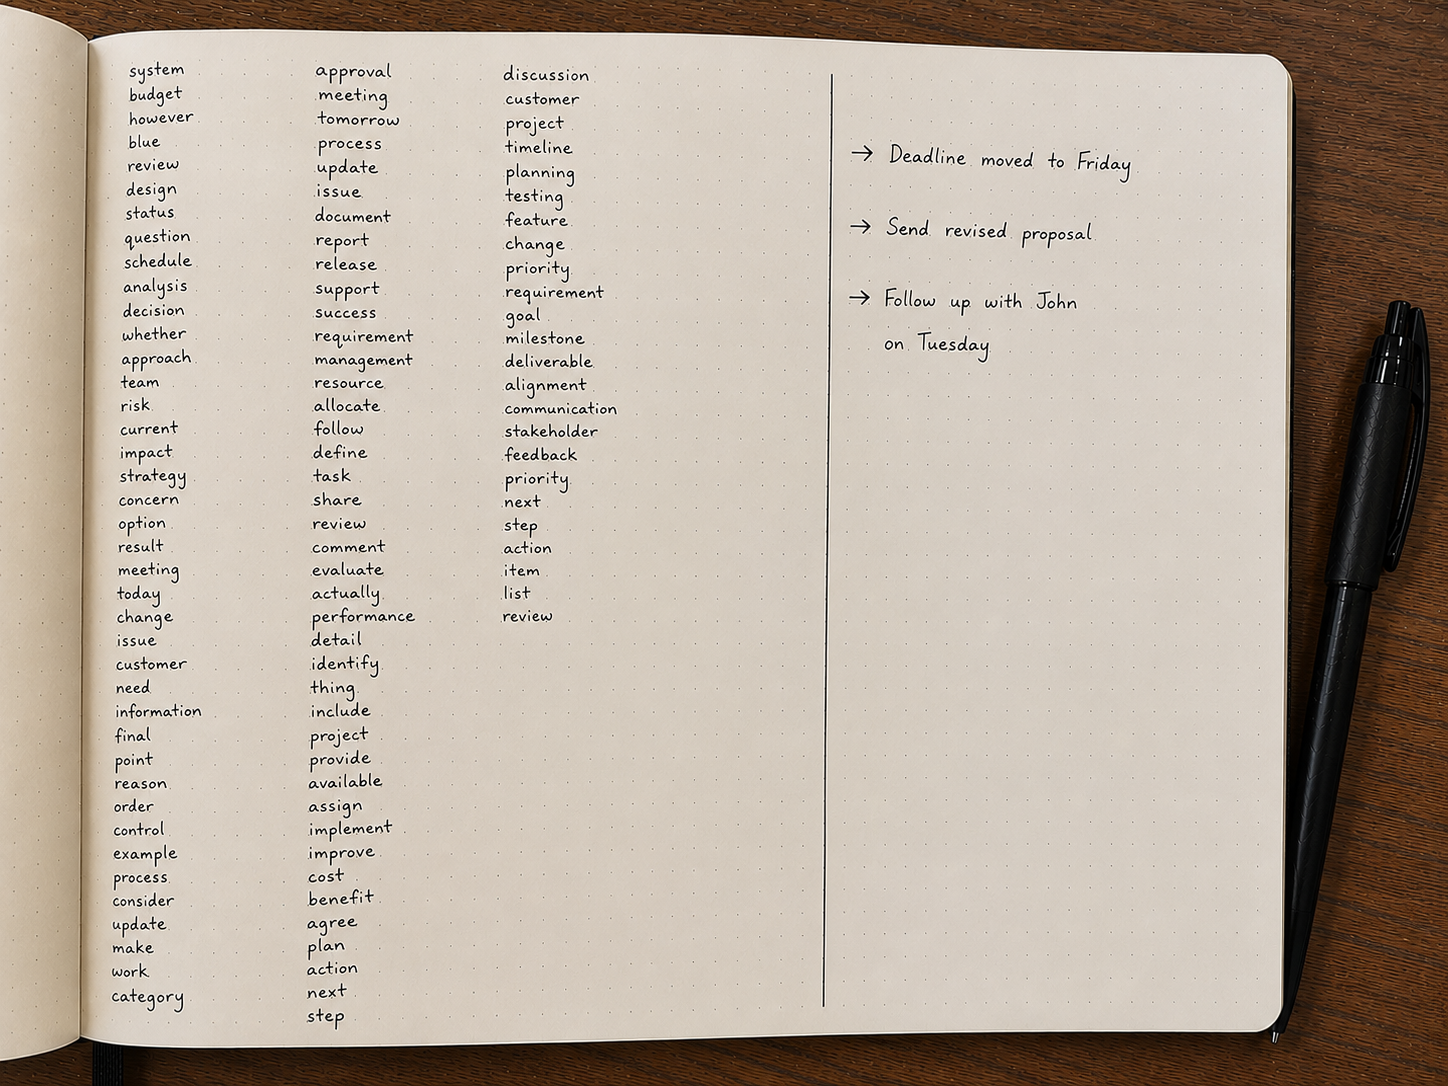 system
budget
however
blue
review
design
status
question
schedule
analysis
decision
whether
approach
team
risk
current
impact
strategy
concern
option
result
meeting
today
change
issue
customer
need
information
final
point
reason
order
control
example
process
consider
update
make
work
category
approval
meeting
tomorrow
process
update
issue
document
report
release
support
success
requirement
management
resource
allocate
follow
define
task
share
review
comment
evaluate
actually
performance
detail
identify
thing
include
project
provide
available
assign
implement
improve
cost
benefit
agree
plan
action
next
step
discussion
customer
project
timeline
planning
testing
feature
change
priority
requirement
goal
milestone
deliverable
alignment
communication
stakeholder
feedback
priority
next
step
action
item
list
review
→ Deadline moved to Friday
→ Send revised proposal
→ Follow up with John
on Tuesday